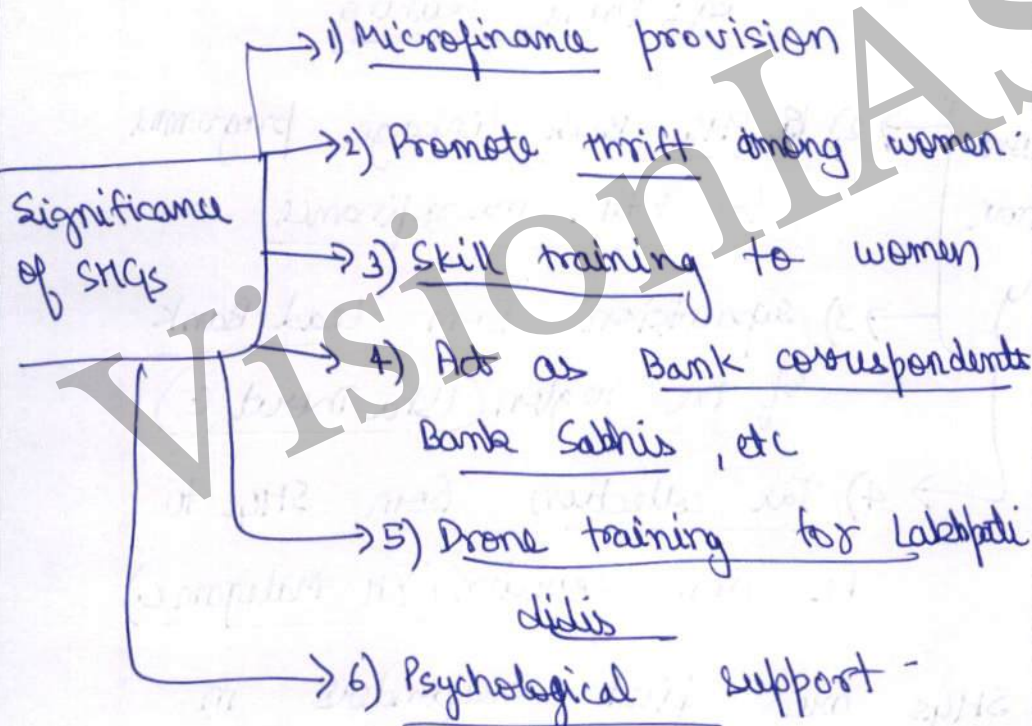 1) Microfinance provision
2) Promote thrift among women.
Significance
of SHGs
3) Skill training to women
4) Act as Bank correspondents
Bank Sakhis, etc
5) Drone training for Lakhpati
didis
6) Psychological support -
VisionIAS